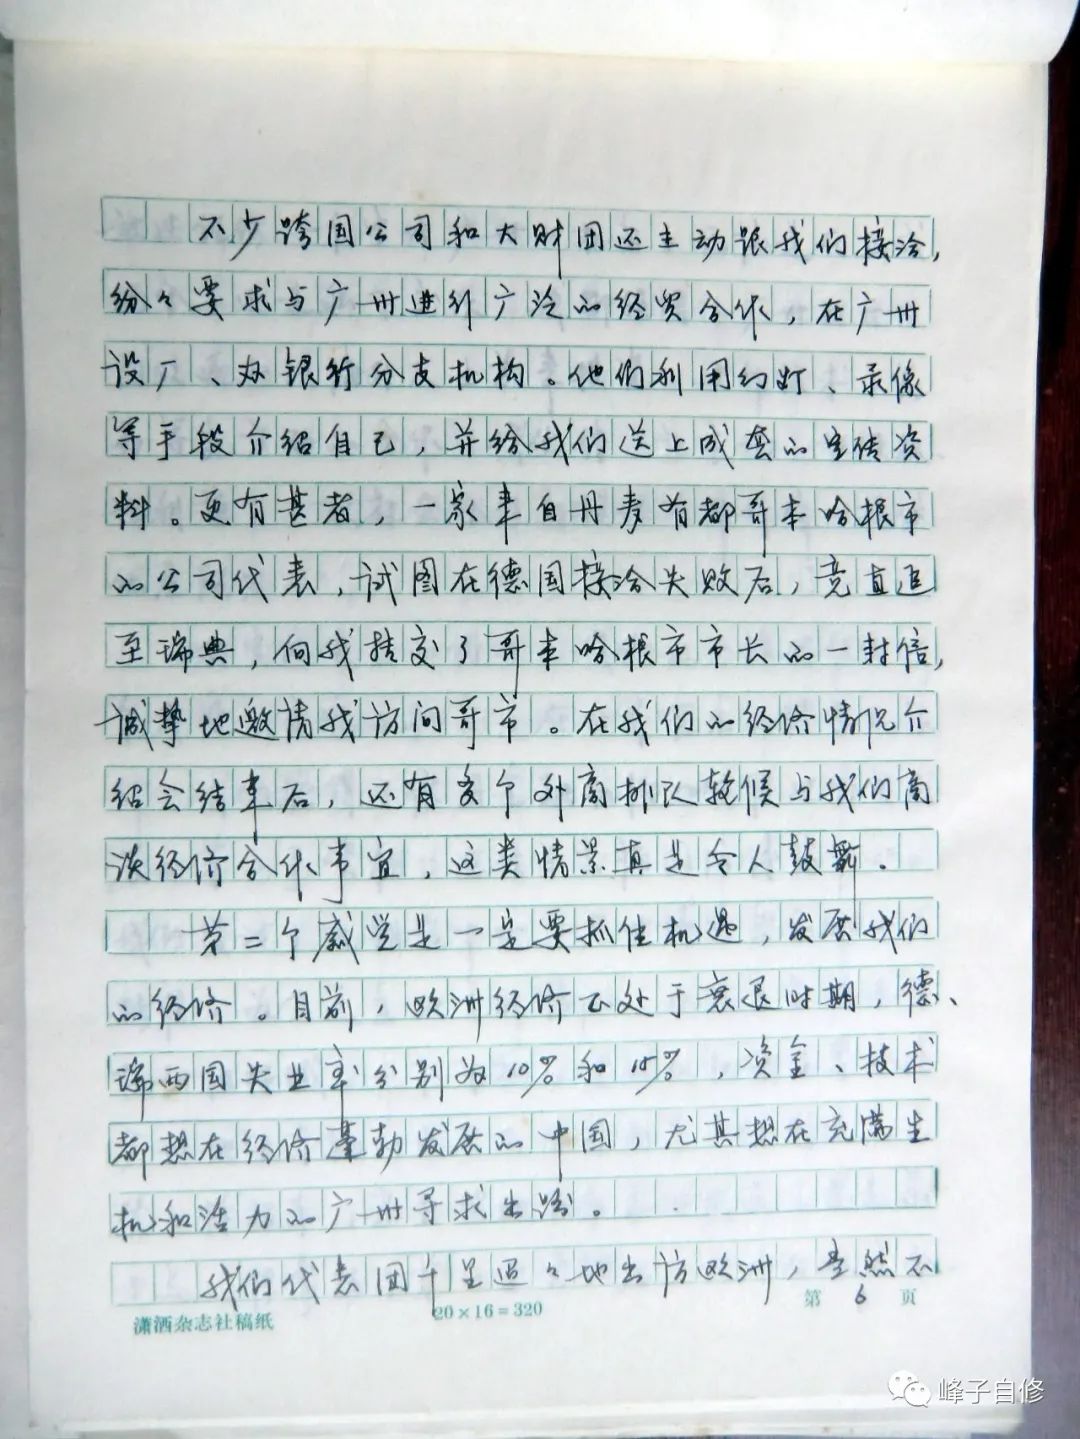 不少跨国公司和大财团还主动跟我们接洽，
纷々要求与广州进行广泛的经贸合作，在广州
设厂、办银行分支机构。他们利用幻灯、录像
等手段介绍自己，并给我们送上成套的宣传资
料。更有甚者，一家来自丹麦首都哥本哈根市
的公司代表，试图在德国接洽失败后，竟直追
至瑞典，向我转交了哥本哈根市市长的一封信，
诚挚地邀请我访问哥市。在我们的经济情况介
绍会结束后，还有多个外商排队轮候与我们商
谈经济合作事宜，这类情景真是令人鼓舞。
第二个感觉是一定要抓住机遇，发展我们
的经济。目前，欧洲经济正处于衰退时期，德、
瑞两国失业率分别为10%和15%，资金、技术
都想在经济蓬勃发展的中国，尤其想在充满生
机和活力的广州寻求出路。
我们代表团千里迢々地出访欧洲，当然不
潇洒杂志社稿纸 20×16=320 第 6 页
峰子自修